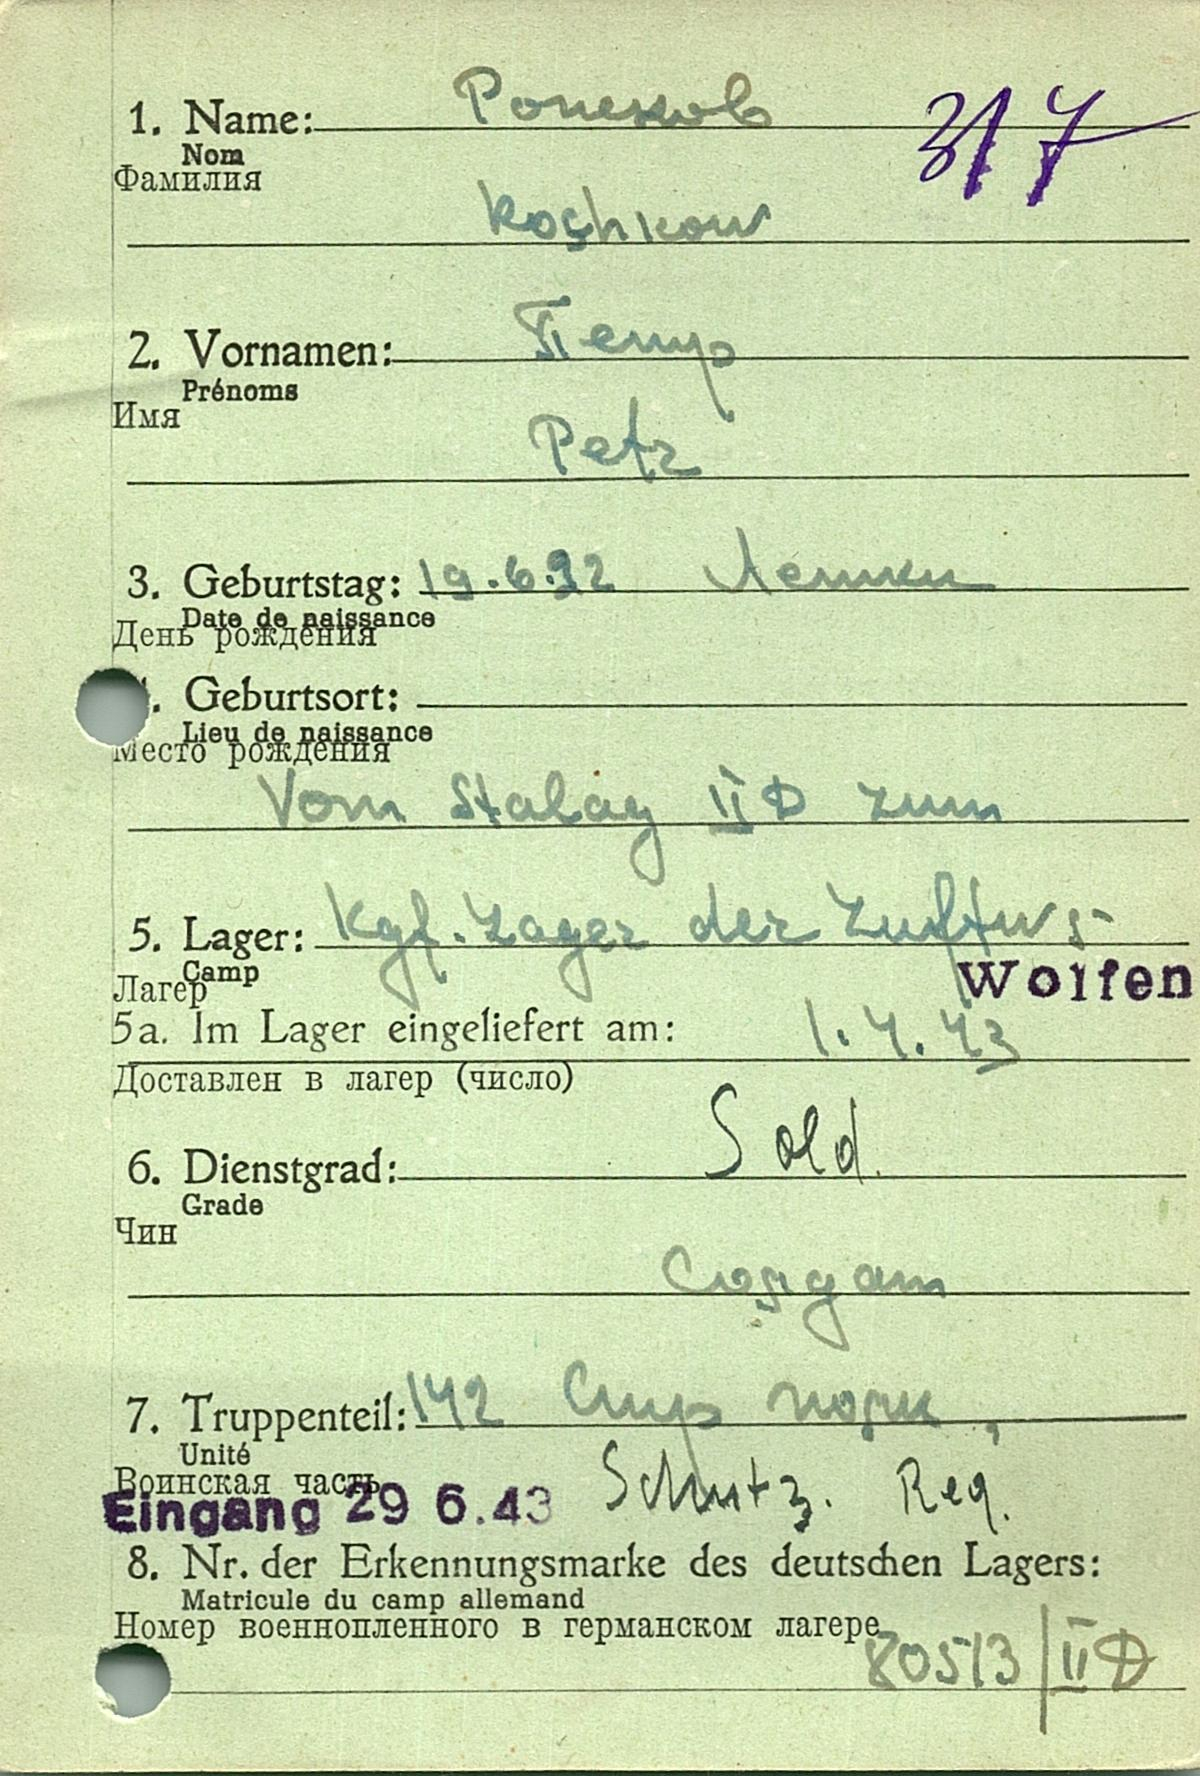 1. Name: 317
Nom
Фамилия
Koschkow
2. Vornamen: Петр
Prénoms
Имя
Petr
3. Geburtstag: 19.6.92
Date de naissance
День рождения
. Geburtsort:
Lieu de naissance
Место рождения
Vom Stalag II D zum
5. Lager: Kgf. Lager der Luftw s-
Camp
Лагер
Wolfen
5a. Im Lager eingeliefert am: 1.4.43
Доставлен в лагер (число)
6. Dienstgrad: Sold.
Grade
Чин
Солдат
7. Truppenteil: 142 Стр полк,
Unité
Воинская часть
Eingang 29 6.43 Schutz. Reg.
8. Nr. der Erkennungsmarke des deutschen Lagers:
Matricule du camp allemand
Номер военнопленного в германском лагере
80513/II D